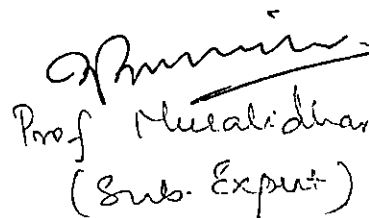 Prof Muralidhar
(Sub. Expert)